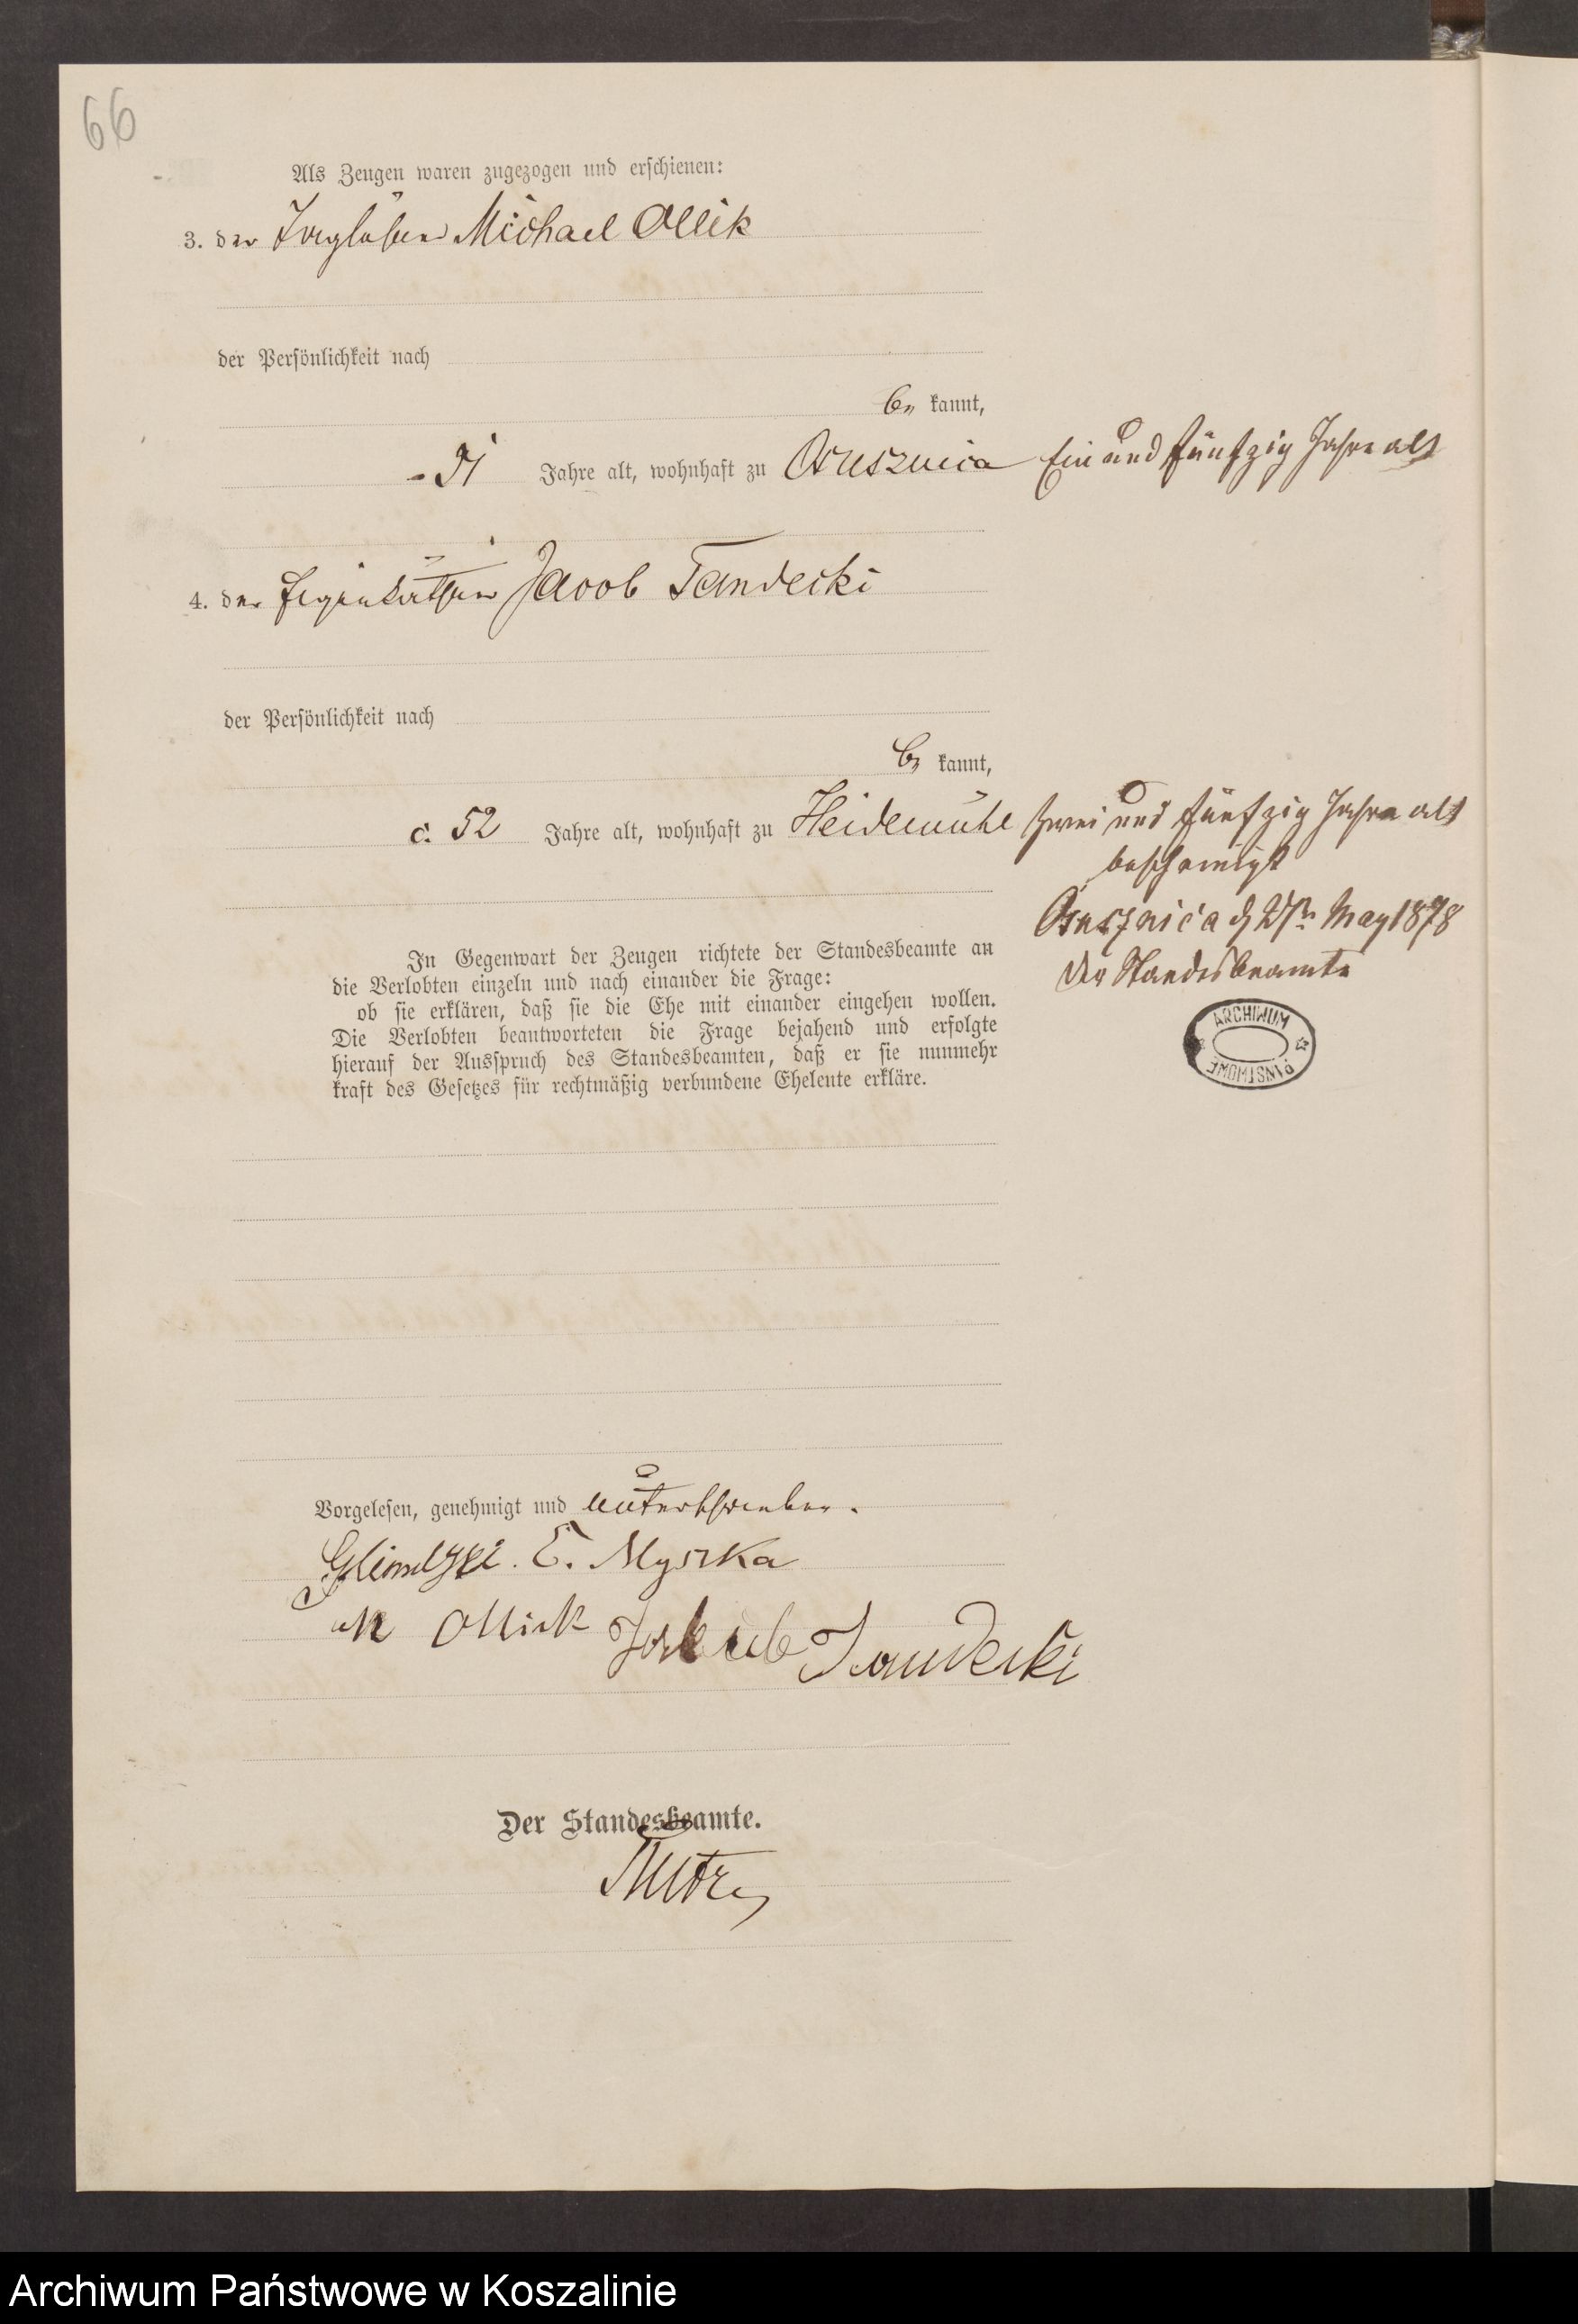 66
Als Zeugen waren zugezogen und erschienen:
3. der Michael Ollik
der Persönlichkeit nach
be kannt,
51 Jahre alt, wohnhaft zu Osusznica Ein und fünfzig Jahre alt
4. der Eigenkäthner Jacob Tandecki
der Persönlichkeit nach
be kannt,
c. 52 Jahre alt, wohnhaft zu Heidemühl Zwei und fünfzig Jahre alt
bescheinigt
Osusznica d 27ten May 1878
Der Standesbeamte
In Gegenwart der Zeugen richtete der Standesbeamte an
die Verlobten einzeln und nach einander die Frage:
ob sie erklären, daß sie die Ehe mit einander eingehen wollen.
Die Verlobten beantworteten die Frage bejahend und erfolgte
hierauf der Ausspruch des Standesbeamten, daß er sie nunmehr
kraft des Gesetzes für rechtmäßig verbundene Eheleute erkläre.
ARCHIWUM
PAŃSTWOWE
Vorgelesen, genehmigt und unterschrieben.
E. Myszka
M Ollick Jakub Tandecki
Der Standesbeamte.
Archiwum Państwowe w Koszalinie